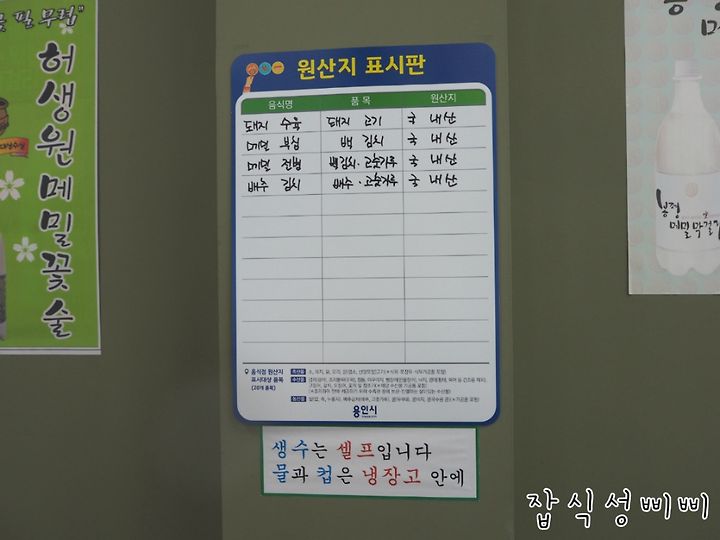 꽃 필 무렵"
허생원메밀꽃술
원산지 표시판
음식명 품 목 원산지
돼지 수육 돼지 고기 국 내산
메밀 부침 백 김치 국 내산
메밀 전병 백김치·고춧가루 국 내산
배추 김치 배추·고춧가루 국 내산
음식점 원산지
표시대상 품목
축산물
수산물
농산물
용인시
생수는 셀프입니다
물과 컵은 냉장고 안에
봉평
메밀막걸
잡식성삐삐